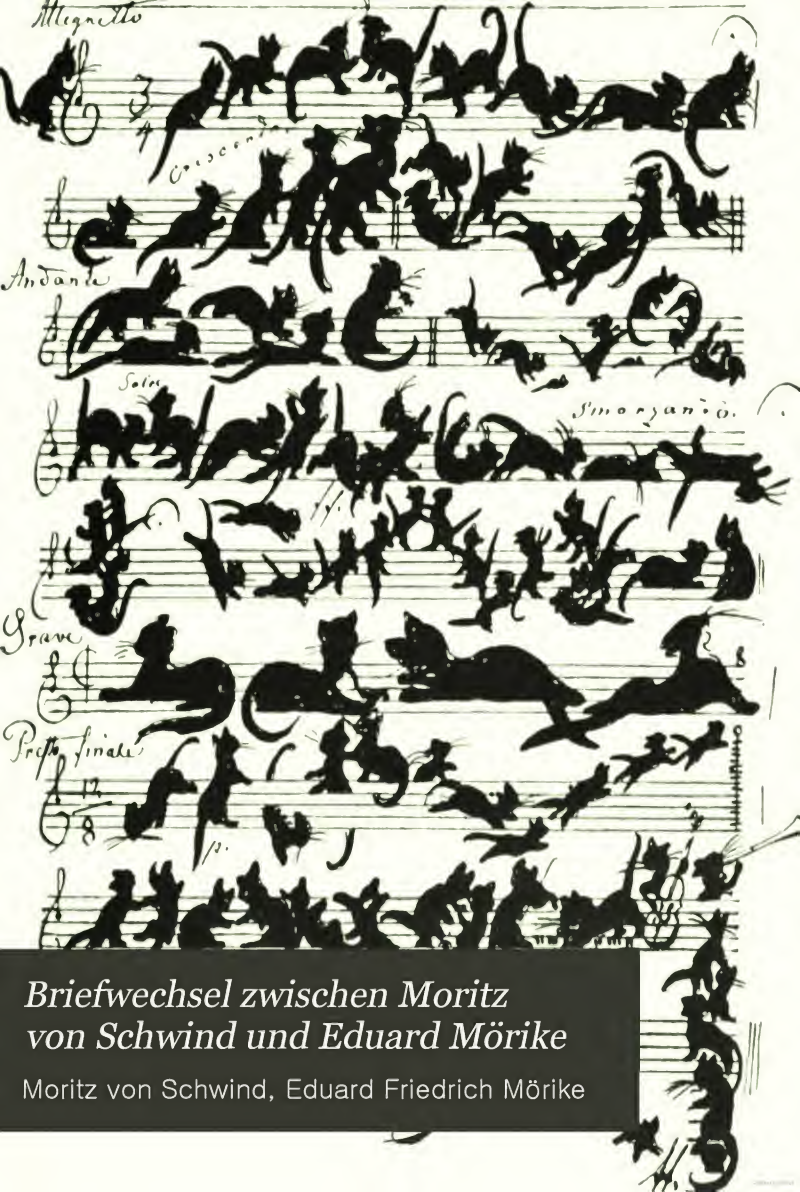 Allegretto
3
4
Crescendo
Andante
Solos
smorzando.
Grave
Presto finale
12
8
p.
Briefwechsel zwischen Moritz
von Schwind und Eduard Mörike
Moritz von Schwind, Eduard Friedrich Mörike